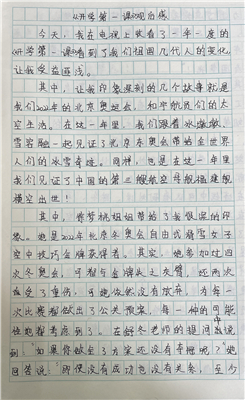 《开学第一课》观后感
今天，我在电视上收看了一年一度的
《开学第一课》看到了我们祖国几代人的变化，
让我受益匪浅。
其中，让我印象深刻的几个故事就是
我们2022年的北京奥运会，和宇航员们的太
空生活。在这一年里，我们跟着冰墩墩、
雪容融一起见证了北京冬奥会带给全世界
人们的冰雪奇迹。同样，也是在这一年里
我们见证了中国的第三艘航空母舰福建舰
横空出世！
其中，徐梦桃姐姐带给了我很深的印
象。她是2022年北京冬奥会自由式滑雪女子
空中技巧金牌获得者。其实，她参加过四
次冬奥会，可都与金牌失之交臂，还两次
遭受了重伤，可她依然没有放弃，为每一
次比赛都做出了公关预案，每一种的可能
性她都考虑到了。在舒冬老师的提问中说
到：如果你做全了方案还没有夺牌呢？她
回答说：即使没有成功也没有关系，至少